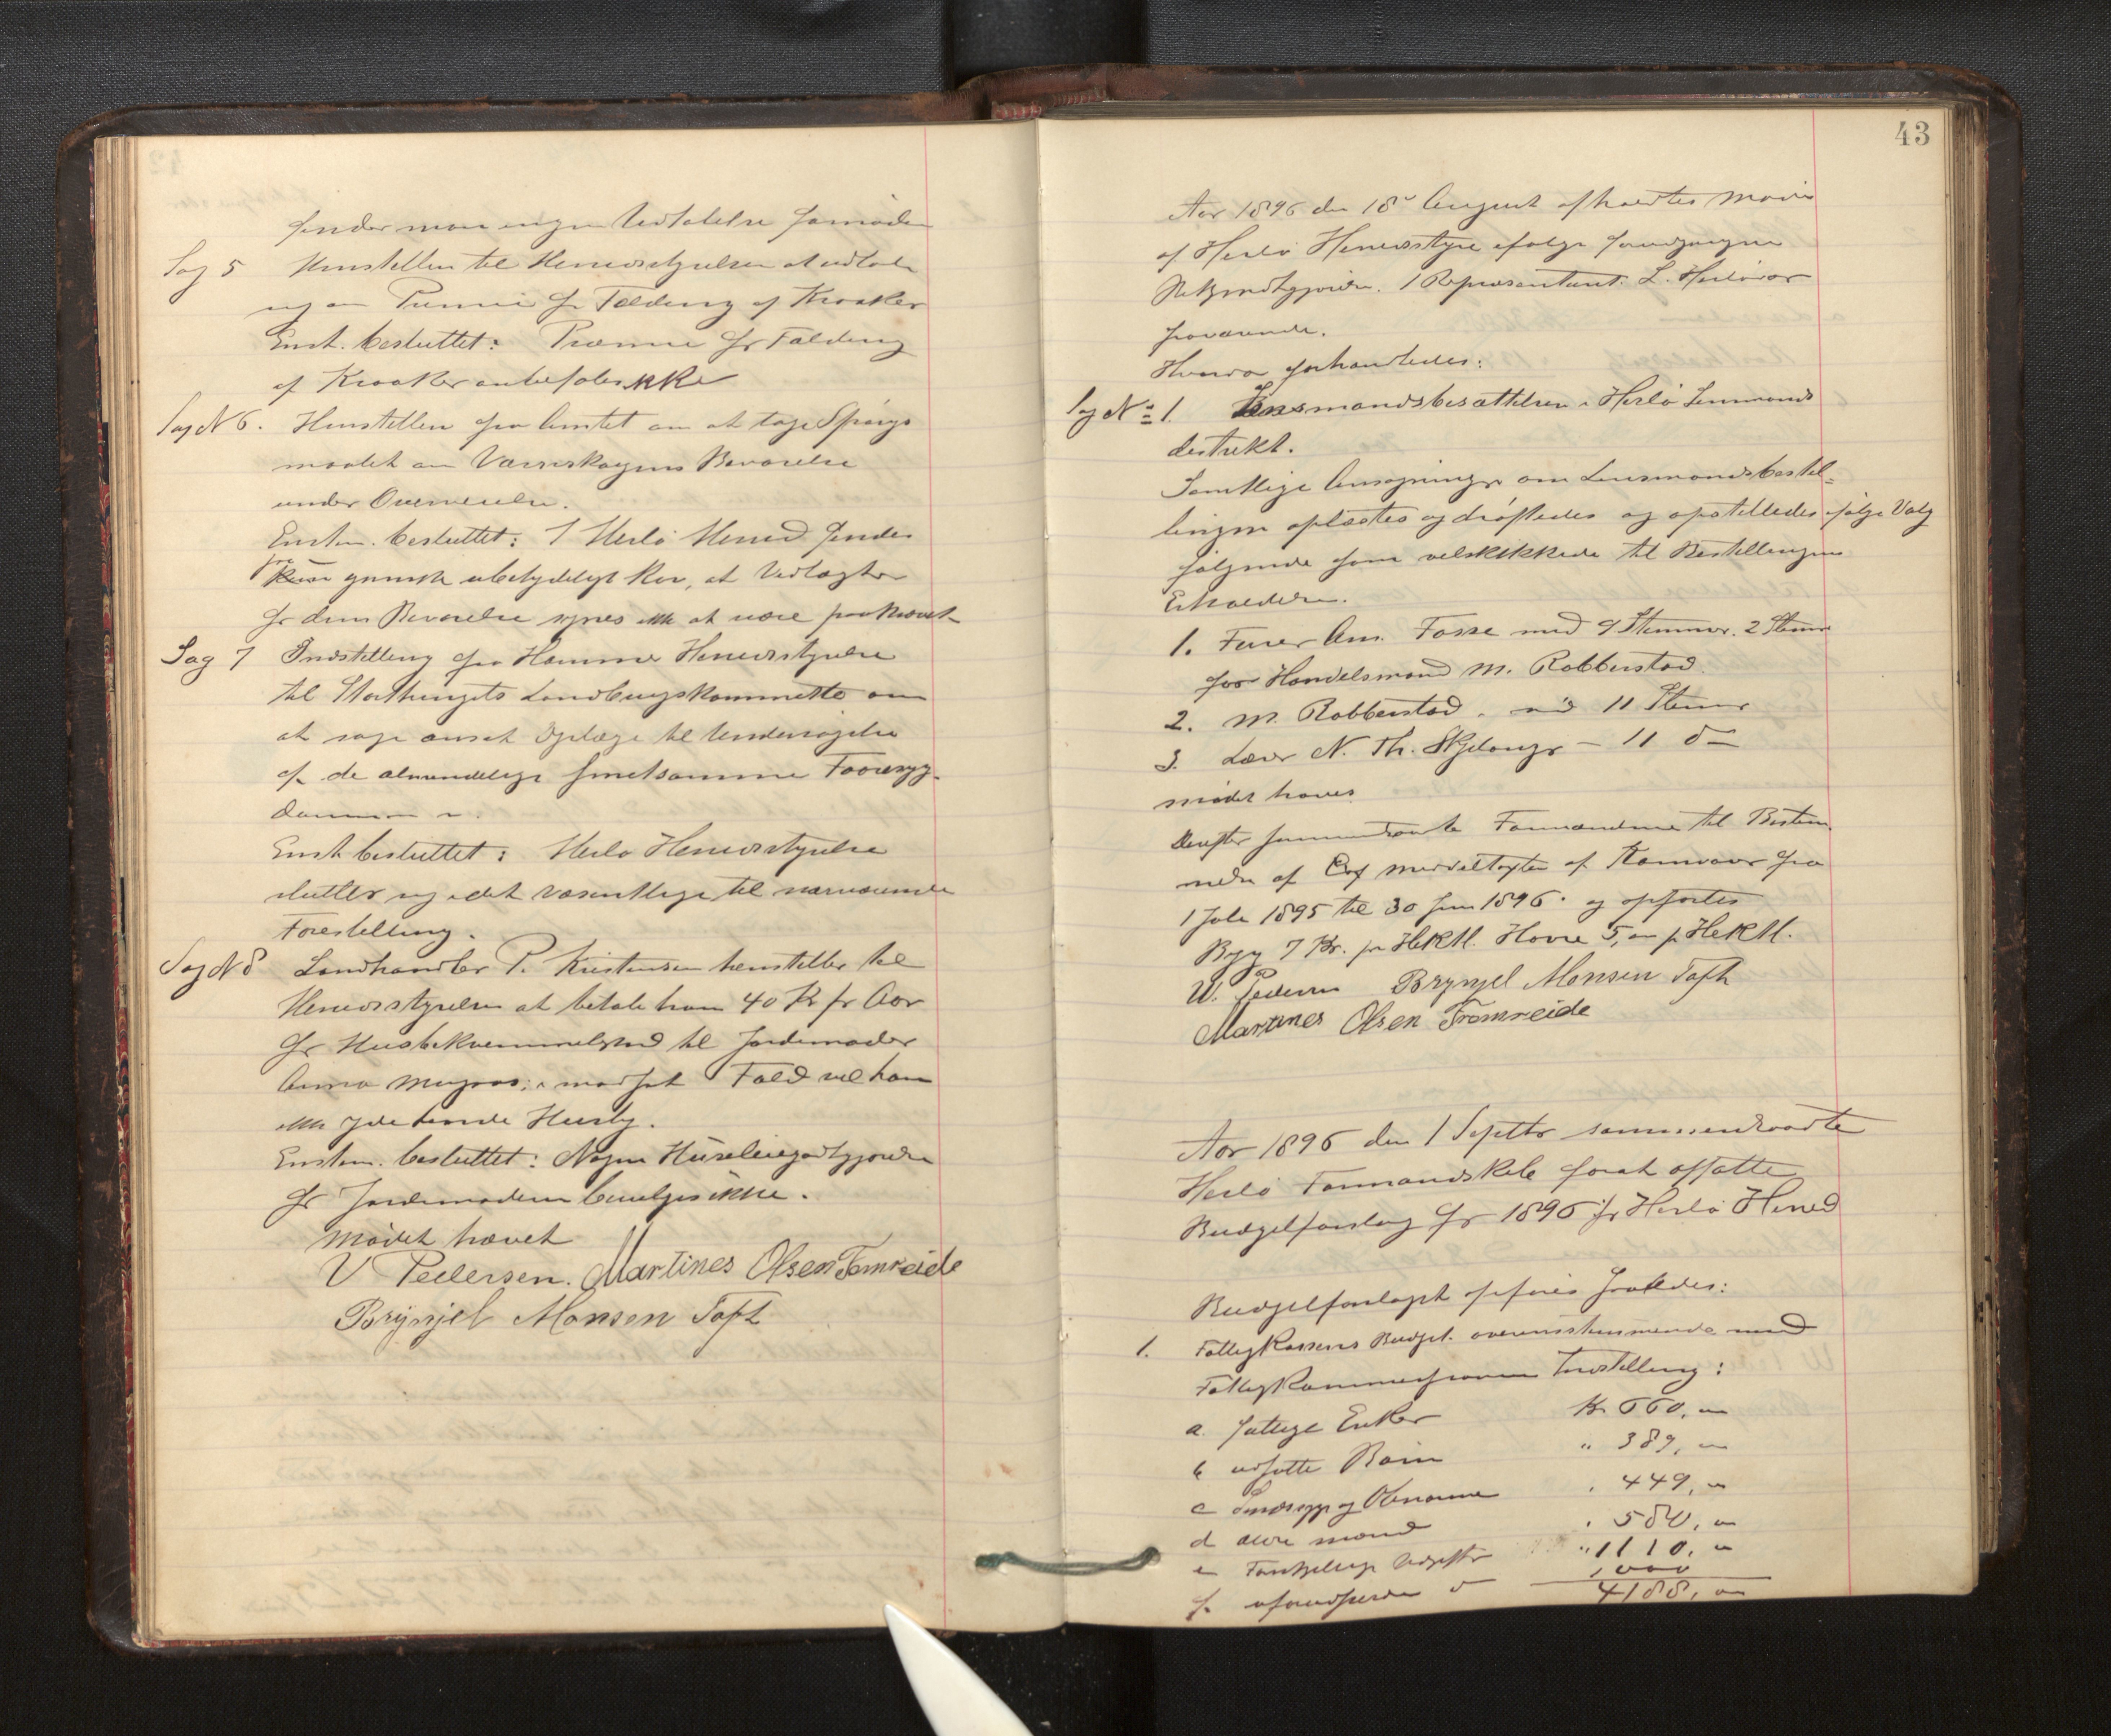 finder man ingen Udtalelse fornøden
Sag 5 Henstillen til Herredsstyrelsen at udtale
sig om Præmie for Fælding af Kraaker
Enst. besluttet: Præmie for Fælding
af Kraaker anbefales ikke
Sag N 6. Henstillen fra Amtet om at tage Spørgs
maalet om Værneskogens Bevarelse
under Overveielse.
Enstem. besluttet: I Herlø Herred findes
for
ganske ubetydeligt Kov, at Vedtægter
for dens Bevarelse synes ikke at være paakrævet
Sag 7 Indstilling fra Hammer Herredsstyrelse
til Storthingets Landbrugskommitte om
at søge ansat Dyrlæge til Undersøgelse
af de almindelige smetsomme Faaresyg-
domme
Enst besluttet: Herlø Herredsstyrelse
slutter sig i det væsentlige til nærværende
Forestilling.
Sag N 8 Landhandler P. Kristensen henstiller til
Herredsstyrelsen at betale ham 40 Kr pr Aar
for Husbekvemmelighed til Jordemoder
Anna i modsat Fald vil han
ikke yde hende Husly.
Enstem. besluttet: Nogen Huseleiegodtgjørelse
for Jordemoderen bevilges ikke.
Mødet hævet
V Pedersen. Martines Olsen Fomreide
Brynjel Monsen Toft
43
Aar 1896 den 18de August afholdtes Møde
af Herlø Herredsstyre ifølge forudgaaende
Bekjendtgjørelse. 1 Repræsentant L. Herløvær
fraværende.
Hvorda forhandledes:
Sag No 1. Lensmandsbesættelsen i Herlø Lensmands
distrikt.
Samtlige Ansøgninger om Lensmandsbestil-
lingen oplæstes og drøftedes og opstilledes ifølge Valg
følgende som velskikkede til Bestillingens
Erholdelse.
1. Furer Am. Fosse med 9 Stemmer. 2 Stemmer
for Handelsmand M. Robberstad.
2. M. Robberstad. med 11 Stemmer
3. Lærer N. Th. Skjelanger – 11 do
Mødet hæves
Derefter sammentraadte Formændene til Bestem
melse af Middeltaxten af Kornvarer fra
1 Juli 1895 til 30 Juni 1896. og opførtes
Byg 7 Kr. pr Hektl. Havre 5, " pr Hektl.
W. Pedersen Brynjel Monsen Toft
Martines Olsen Fromreide
Aar 1896 den 1 Septbr sammentraadte
Herlø Formandskab forat affatte
Budgetforslag for 1896 for Herlø Herred
Budgetforslaget opføres saaledes:
1. Fattigkassens Budget. overensstemmende med
Fattigkommissionens Indstilling:
a. fattige Enker Kr. 660, "
b udsatte Børn " 389, "
c Sindssyge og " 449, "
d ældre mænd " 580, "
e Forskjellige Udgifter " 1110, "
f. uforudseede do 1,000
4188, "